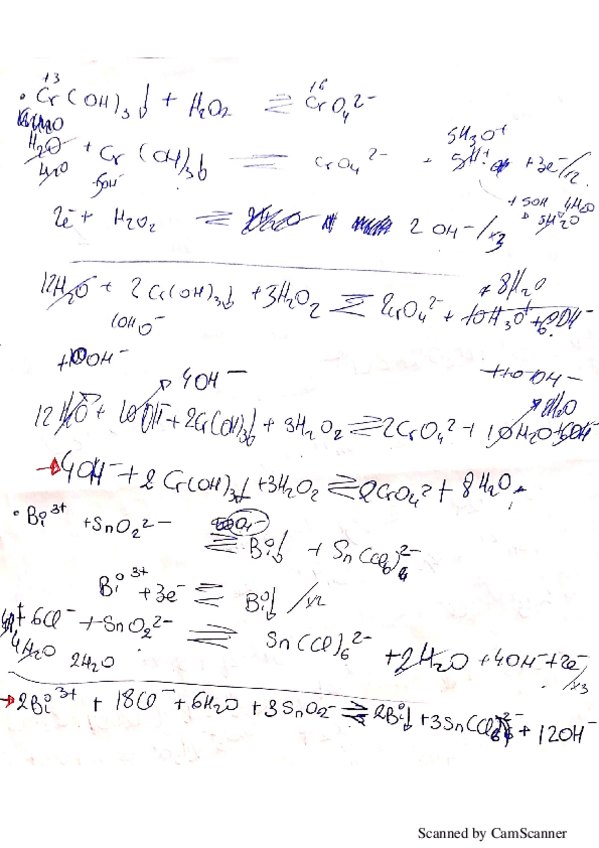 +3 +6
• Cr(OH)3↓ + H2O2 ⇌ CrO4 2-
H2O + Cr(OH)3↓ ⇌ CrO4 2- + 5H3O+ +3e-/x2
4H2O 5OH- + 5OH 4H2O
2e- + H2O2 ⇌ 2OH-/x3
12H2O + 2Cr(OH)3↓ + 3H2O2 ⇌ 2CrO4 2- + 10H3O+ + 6OH-
10H2O 8H2O
+10OH- +10OH-
4OH- 8H2O
12H2O + 10OH- + 2Cr(OH)3↓ + 3H2O2 ⇌ 2CrO4 2- + 10H2O + 6OH-
→ 4OH- + 2Cr(OH)3↓ + 3H2O2 ⇌ 2CrO4 2- + 8H2O
• Bi3+ + SnO2 2- ⇌ Bi↓ + Sn(Cl)6 2-
Bi3+ + 3e- ⇌ Bi↓ /x2
+ 6Cl- + SnO2 2- ⇌ Sn(Cl)6 2- + 2H2O + 4OH- + 2e- /x3
4H2O 2H2O
→ 2Bi3+ + 18Cl- + 6H2O + 3SnO2- ⇌ 2Bi↓ + 3Sn(Cl)6 2- + 12OH-
Scanned by CamScanner